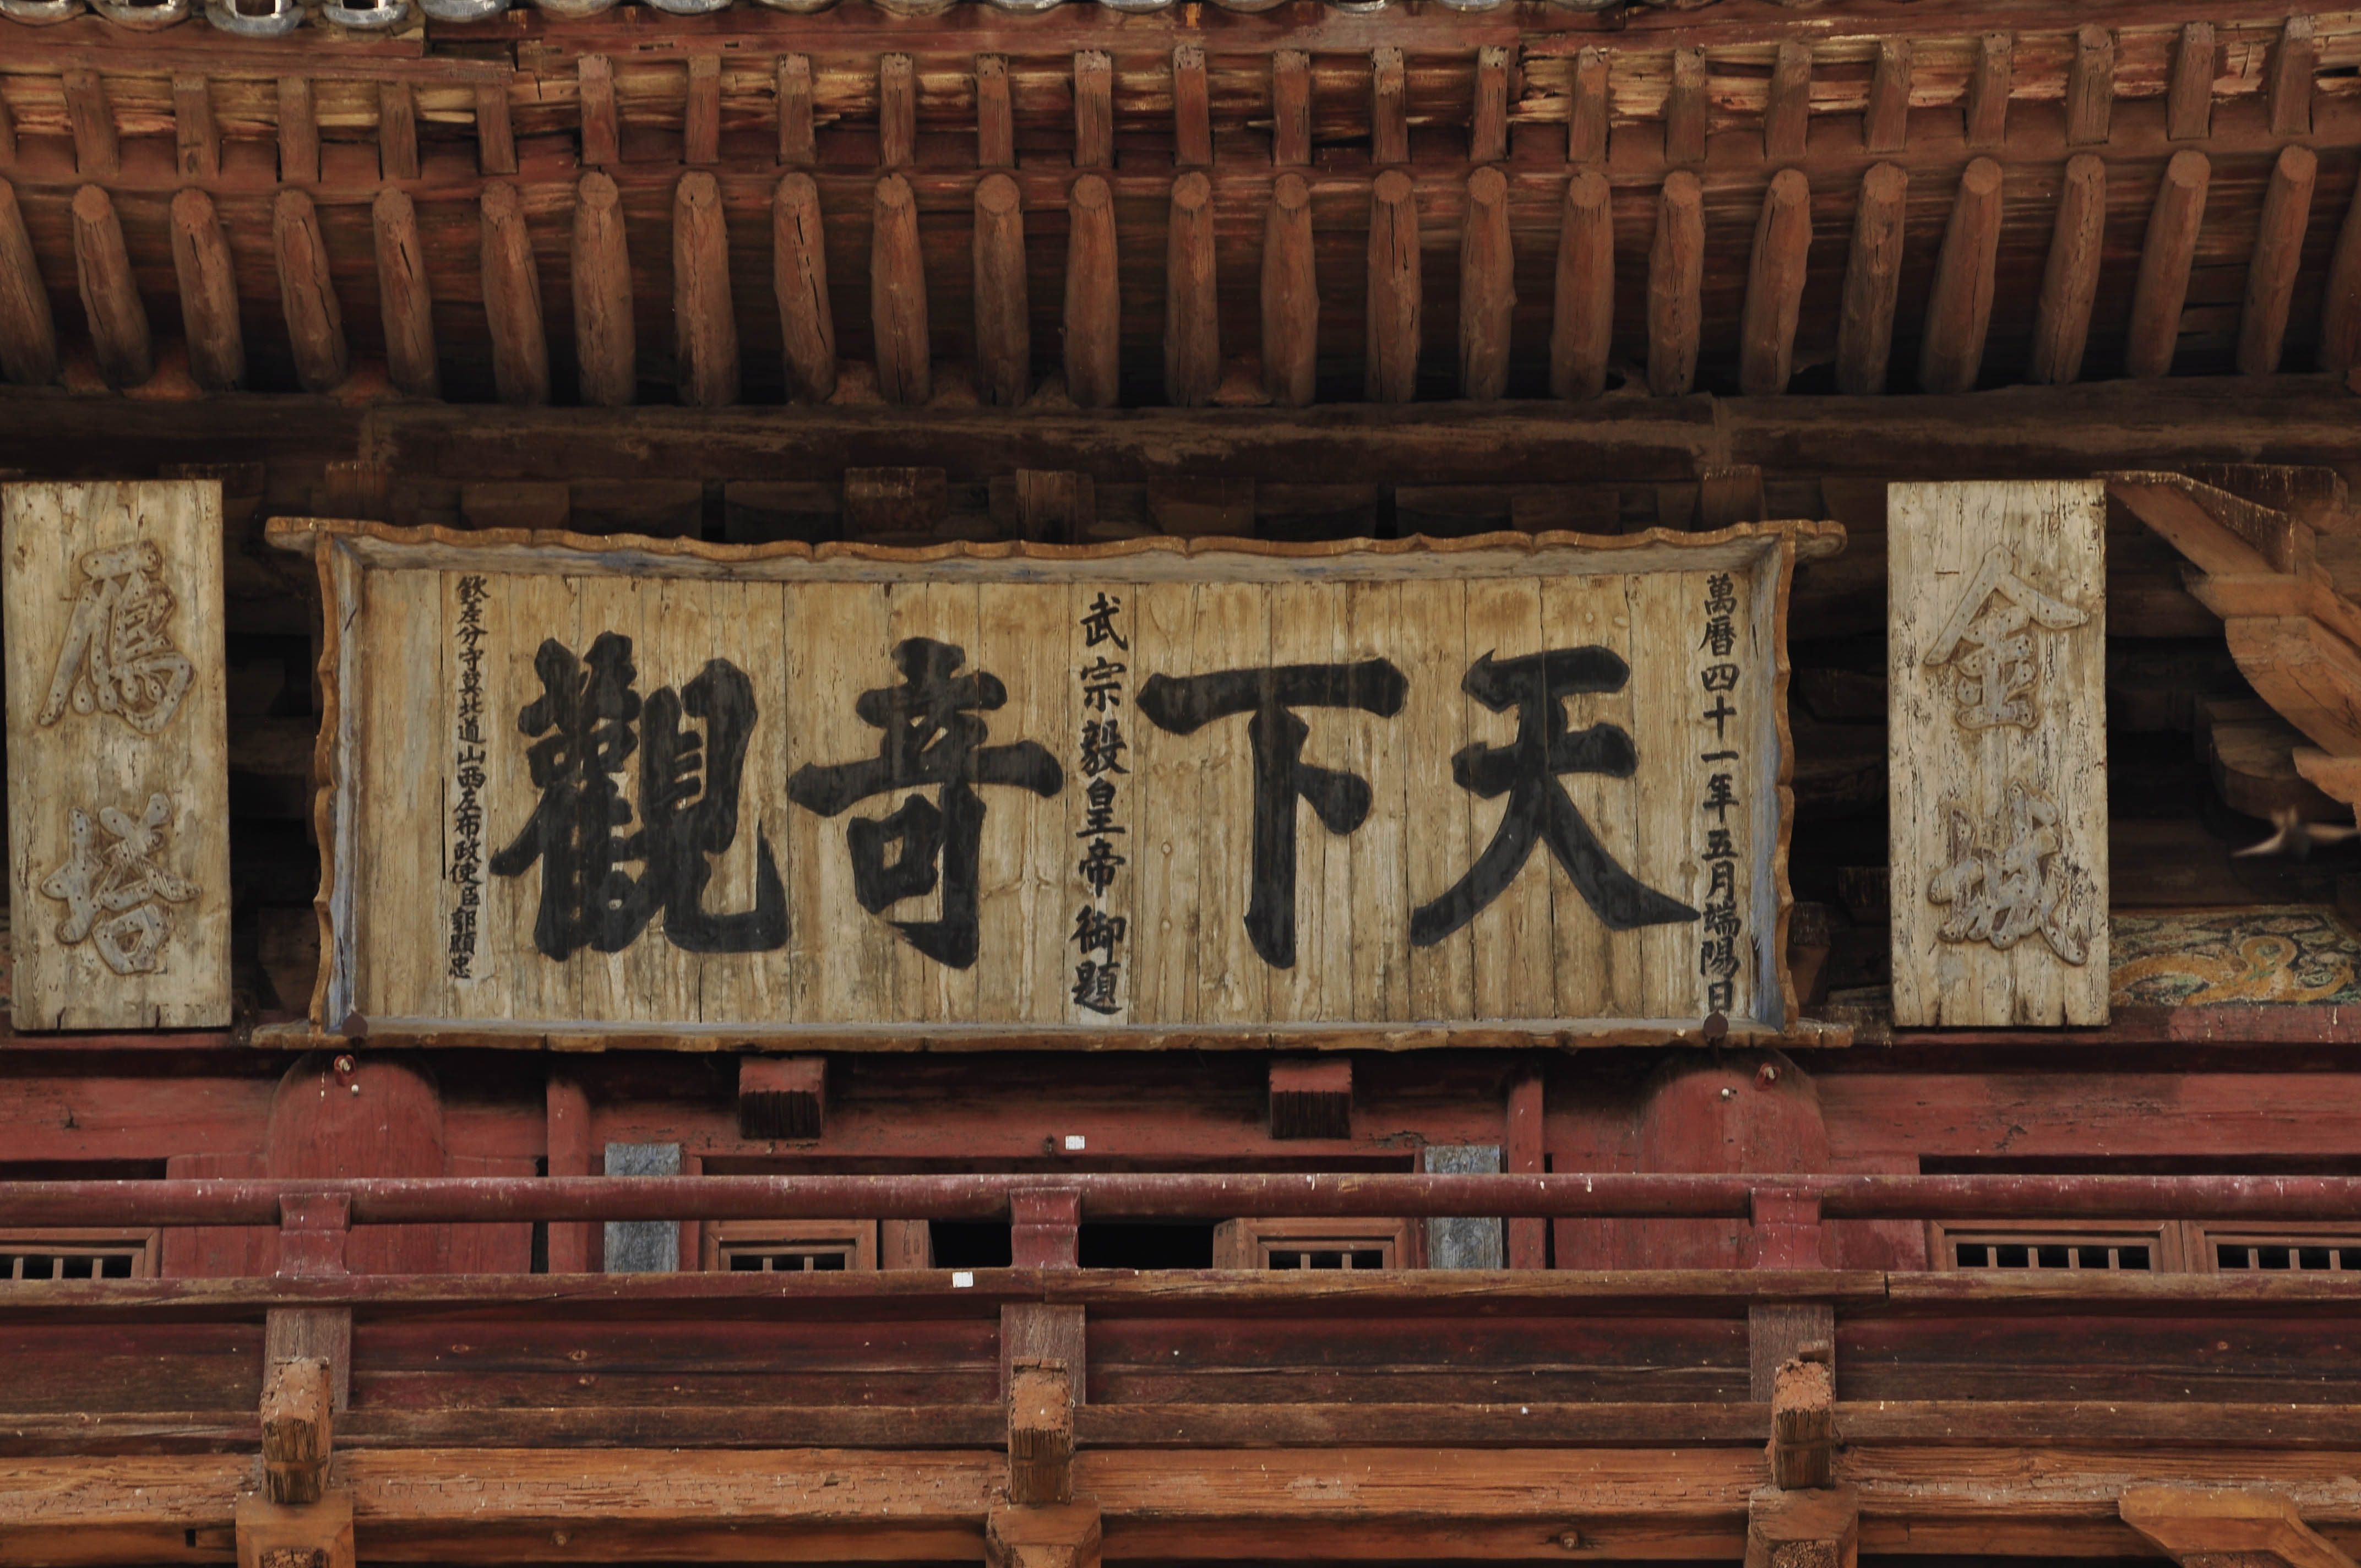 金城
萬曆四十一年五月端陽日
天下奇觀
武宗毅皇帝御題
欽差分守冀北道山西左布政使臣郭顯忠
雁塔